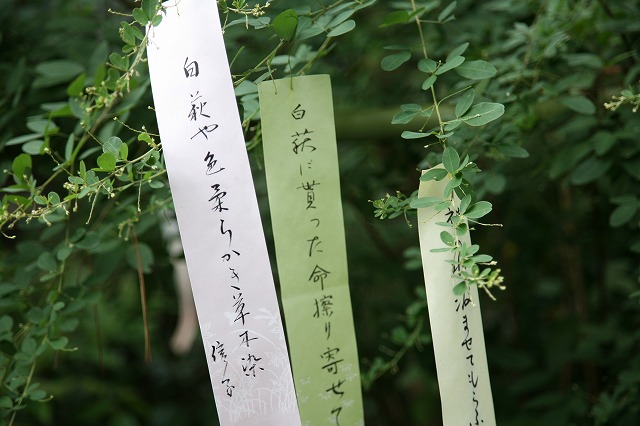 白萩や色柔らかき草木染
信子
白萩に貰った命擦り寄せて
ませてもらふ